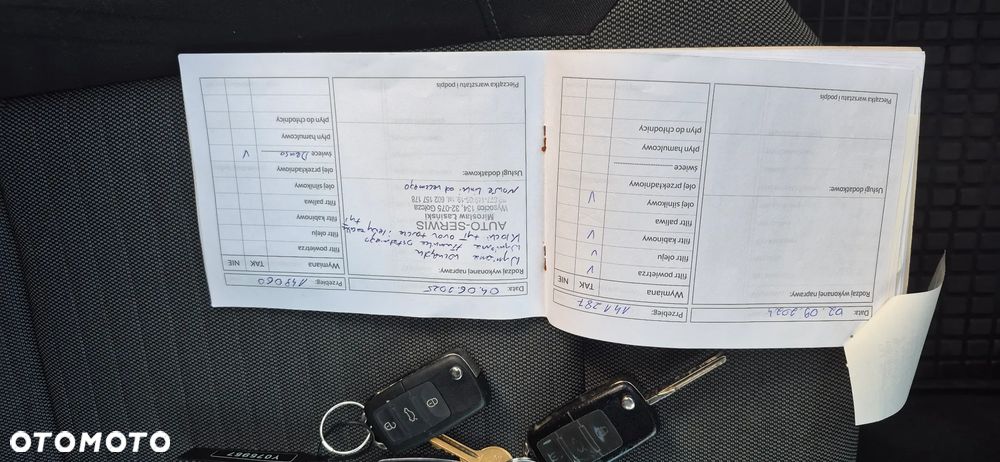 Data: 02.09.2024 Przebieg: 141.287
Rodzaj wykonanej naprawy:
Wymiana TAK NIE
filtr powietrza V
filtr oleju V
filtr kabinowy V
filtr paliwa
olej silnikowy V
olej przekładniowy
świece
płyn hamulcowy
płyn do chłodnicy
Usługi dodatkowe:
Pieczątka warsztatu i podpis
Data: 04.06.2025 Przebieg:
Rodzaj wykonanej naprawy:
Wymiana
Wymiana Hamulca
Klocki tył oraz tarcze i tył
AUTO-SERWIS
Mirosław Łasiński
Wysocice 134, 32-075 Gołcza
602 157 178
Nowe linki od ręcznego
Usługi dodatkowe:
Pieczątka warsztatu i podpis
Wymiana TAK NIE
filtr powietrza
filtr oleju
filtr kabinowy
filtr paliwa
olej silnikowy
olej przekładniowy
świece Denso V
płyn hamulcowy
płyn do chłodnicy
OTOMOTO